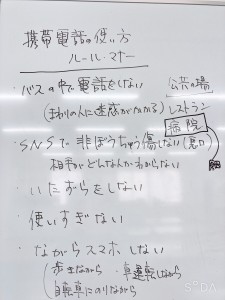 携帯電話の使い方
ルール・マナー
・バスの中で電話をしない 〔公共の場〕
(まわりの人に迷惑がかかる) レストラン
病院
・SNSで非ぼうちゅう傷しない(悪口)
相手がどんな人かわからない
・いたずらをしない
・使いすぎない
・ながらスマホしない
(歩きながら ・車運転しながら
(自転車にのりながら
SEDA